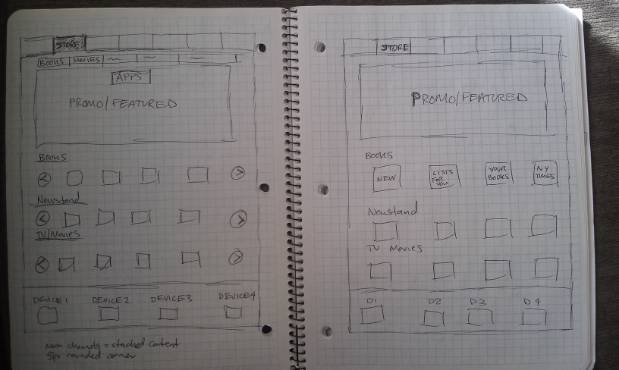 STORE
BOOKS MOVIES
APPS
PROMO/FEATURED
BOOKS
Newsstand
TV/Movies
DEVICE 1 DEVICE 2 DEVICE 3 DEVICE 4
= stacked content
5px rounded corner
STORE
PROMO/FEATURED
BOOKS
NEW
LISTS FOR YOU
YOUR BOOKS
NY TIMES
Newsstand
TV Movies
D1 D2 D3 D4